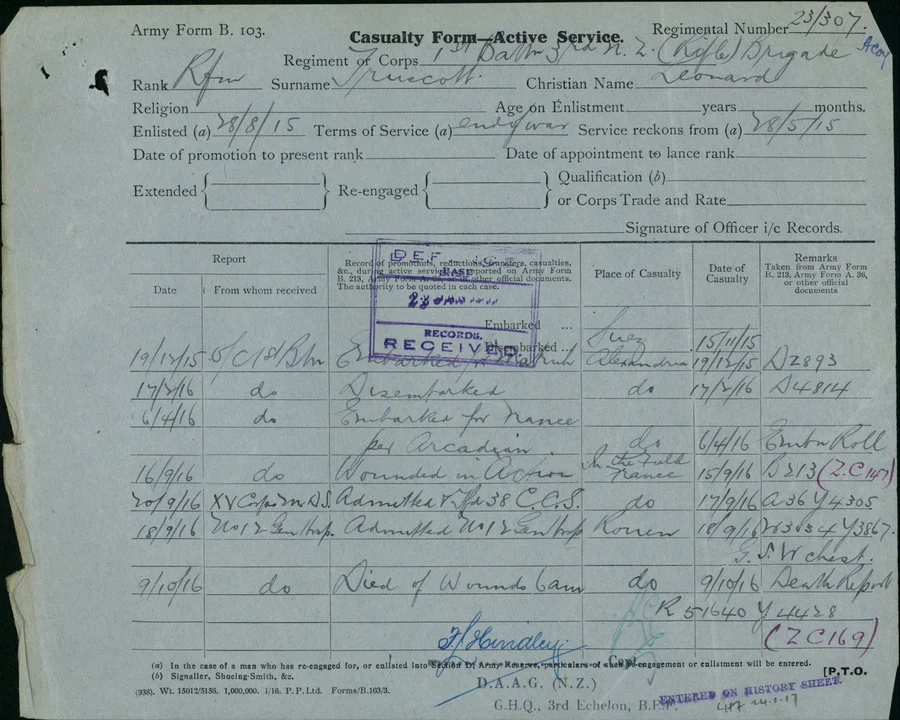 Army Form B. 103.
Casualty Form—Active Service.
Regimental Number 23/307.
Regiment or Corps 1st Battn 3rd N. Z. (Rifle) Brigade A Coy
Rank Rfm Surname Truscott. Christian Name Leonard
Religion Age on Enlistment years months.
Enlisted (a) 28/8/15 Terms of Service (a) end of war Service reckons from (a) 28/5/15
Date of promotion to present rank Date of appointment to lance rank
Extended { } Re-engaged { } Qualification (b)
or Corps Trade and Rate
Signature of Officer i/c Records.
Report
Date From whom received
Record of promotions, reductions, transfers, casualties, &c., during active service, as reported on Army Form B. 213, Army Form A. 36, or other official documents. The authority to be quoted in each case.
Place of Casualty
Date of Casualty
Remarks
Taken from Army Form B. 213, Army Form A. 36, or other official documents
BASE
RECORDS.
RECEIVED
Embarked ... Suez 15/11/15
Disembarked ...
19/12/15 O/C 1st Btn Embarked Alexandria 19/12/15 DZ893
17/2/16 do Disembarked do 17/2/16 D4814
6/4/16 do Embarked for France
per Arcadian do 6/4/16 Embn Roll
16/9/16 do Wounded in Action In the Field France 15/9/16 B213 (Z.C 147)
20/9/16 XV Corps M.D.S. Admitted & Tfd 38 C.C.S. do 17/9/16 A36 Y4305
18/9/16 No 12 Gen Hosp. Admitted No 12 Gen Hosp Rouen 18/9/16 W3034 Y3867.
G. S. W chest.
9/10/16 do Died of Wounds 6am do 9/10/16 Death Report
K 51640 Y 4428
(ZC169)
(a) In the case of a man who has re-engaged for, or enlisted into Section D, Army Reserve, particulars of such re-engagement or enlistment will be entered.
(b) Signaller, Shoeing-Smith, &c.
[P.T.O.
(938). Wt. 15012/5158. 1,000,000. 1/16. P. P. Ltd. Forms/B.103/3.
D.A.A.G. (N.Z.)
G.H.Q., 3rd Echelon, B.E.F.
ENTERED ON HISTORY SHEET.